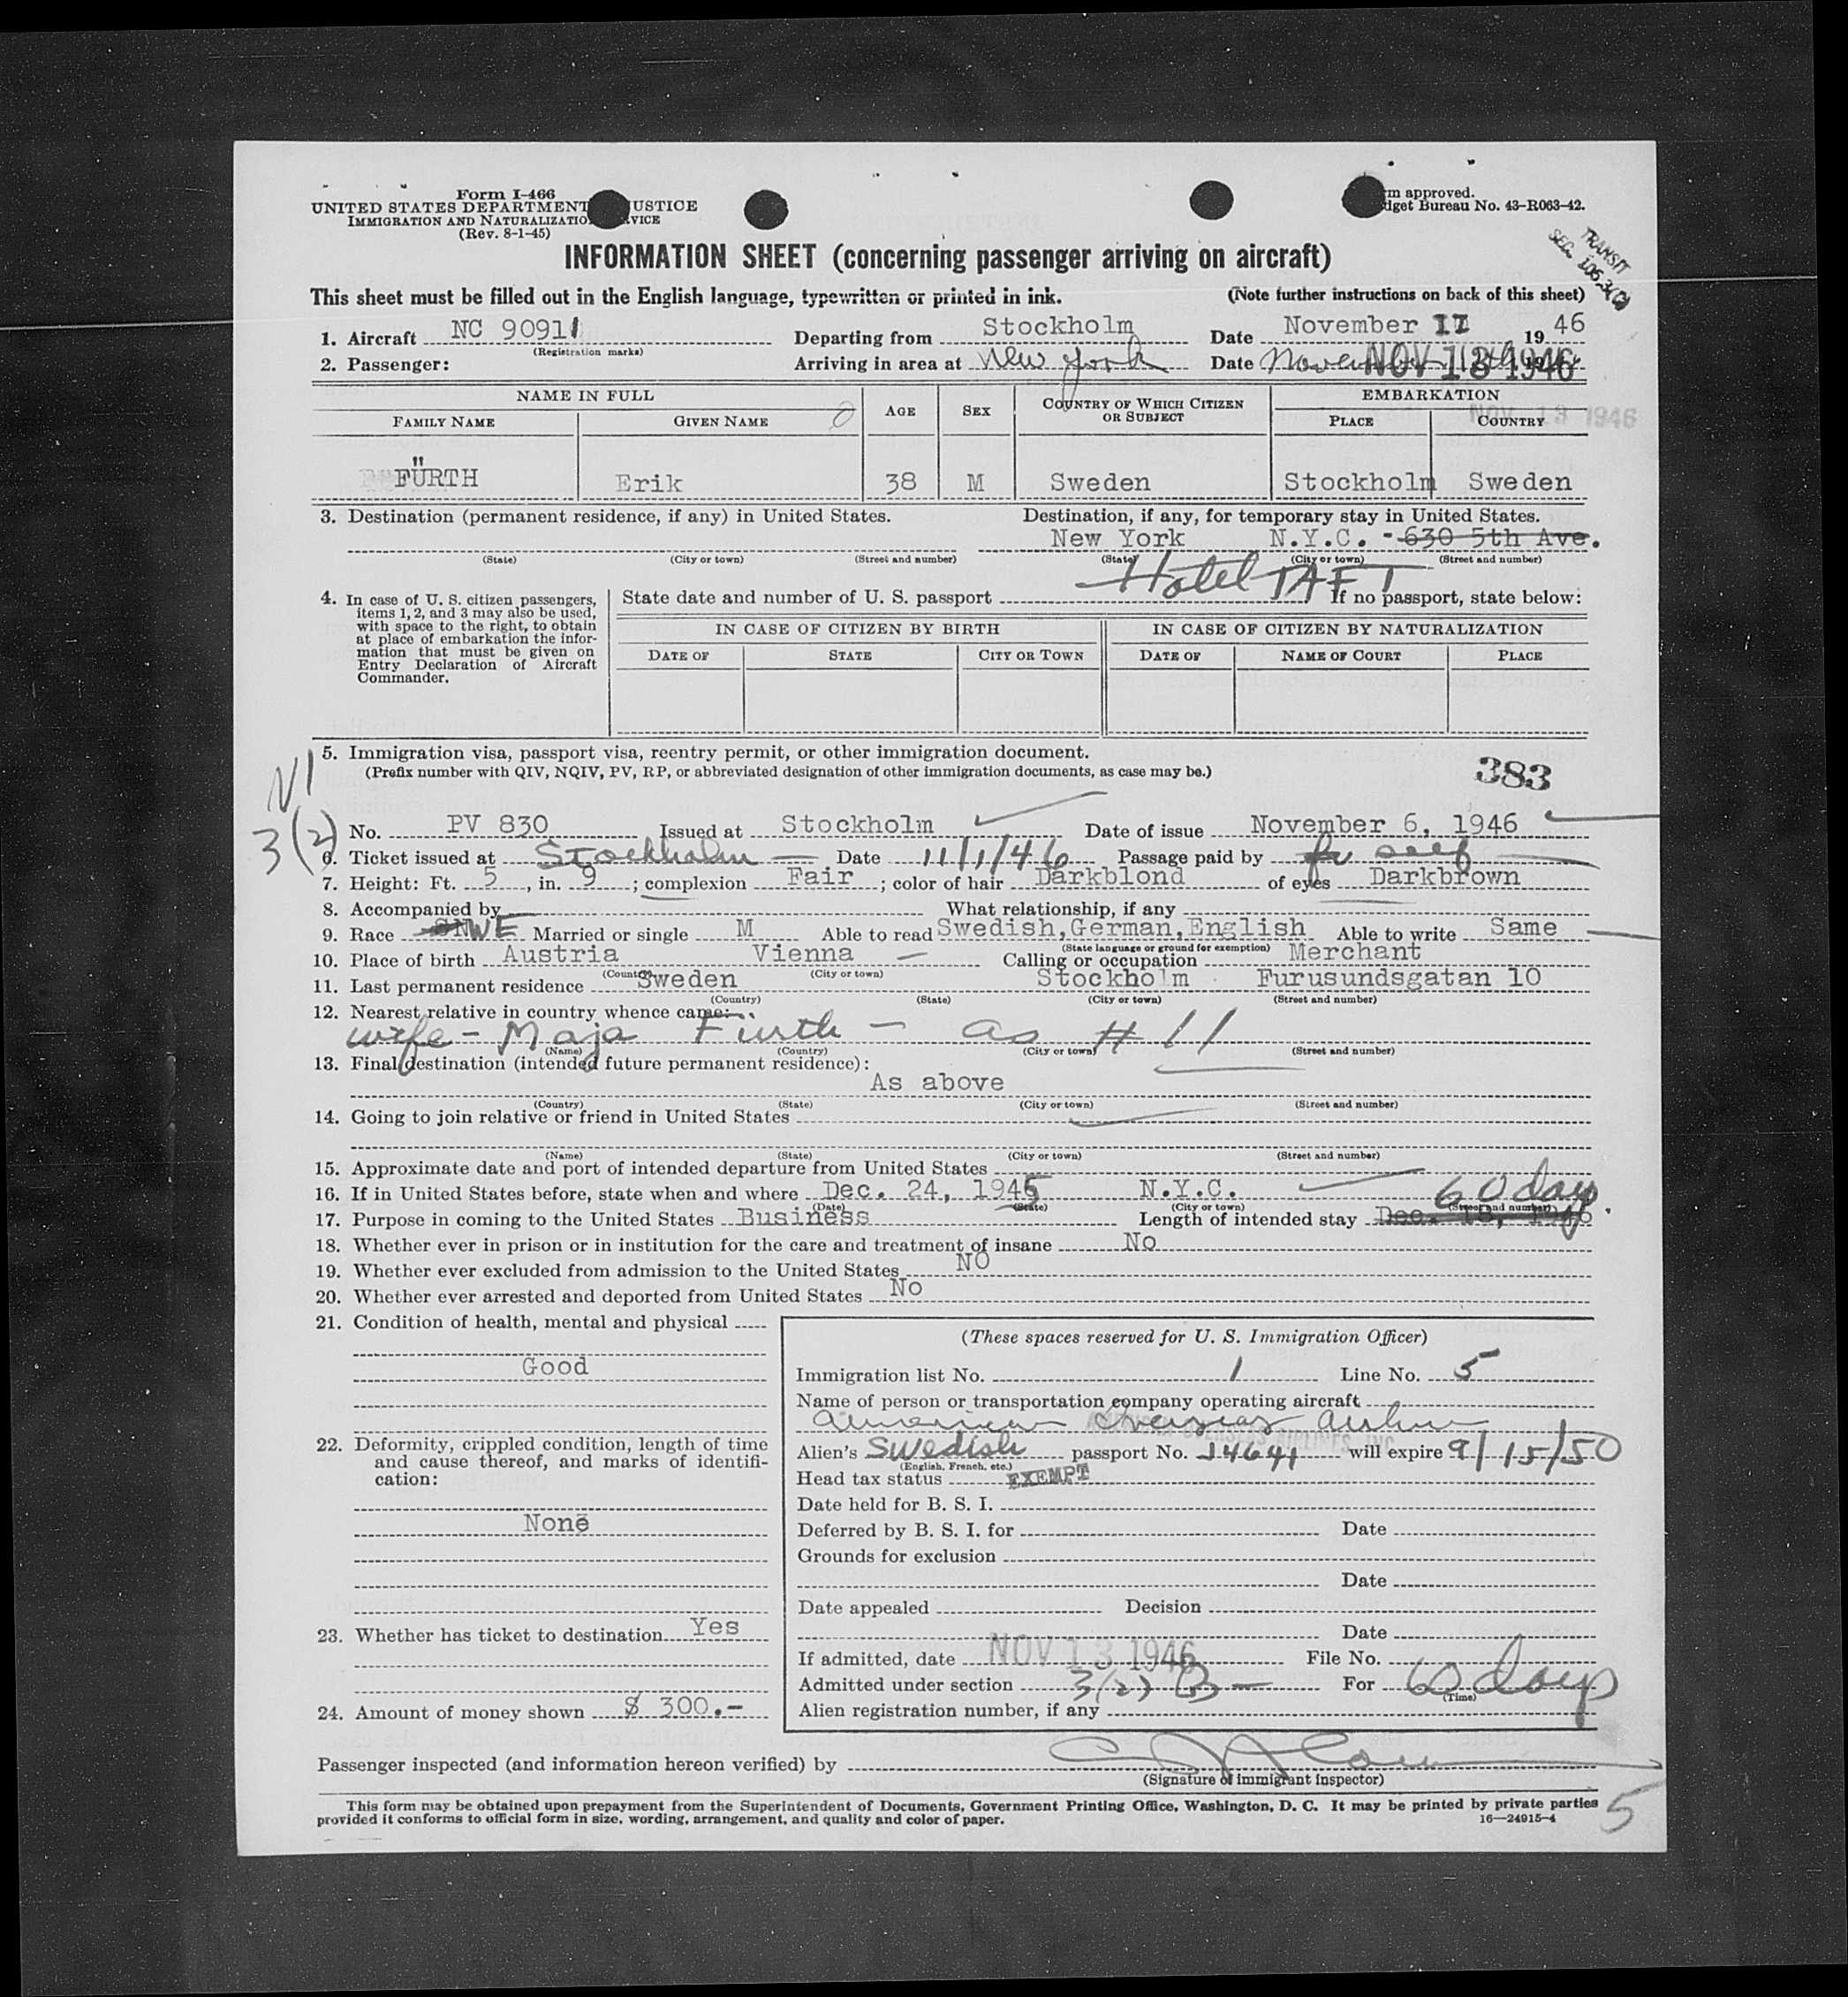 Form I-466
UNITED STATES DEPARTMENT USTICE
IMMIGRATION AND NATURALIZATIO VICE
(Rev. 8-1-45)
m approved.
dget Bureau No. 43-R063-42.
TRANSIT
SEC. 105.3(
INFORMATION SHEET (concerning passenger arriving on aircraft)
This sheet must be filled out in the English language, typewritten or printed in ink. (Note further instructions on back of this sheet)
1. Aircraft NC 90911 Departing from Stockholm Date November 1946
(Registration marks)
2. Passenger: Arriving in area at New York Date NOV 13 1946
NAME IN FULL AGE SEX COUNTRY OF WHICH CITIZEN OR SUBJECT EMBARKATION
NOV 13 1946
FAMILY NAME GIVEN NAME PLACE COUNTRY
FÜRTH Erik 38 M Sweden Stockholm Sweden
3. Destination (permanent residence, if any) in United States. Destination, if any, for temporary stay in United States.
New York N.Y.C. - 630 5th Ave.
(State) (City or town) (Street and number) (State) (City or town) (Street and number)
Hotel TAFT
4. In case of U. S. citizen passengers, items 1, 2, and 3 may also be used, with space to the right, to obtain at place of embarkation the information that must be given on Entry Declaration of Aircraft Commander.
State date and number of U. S. passport If no passport, state below:
IN CASE OF CITIZEN BY BIRTH IN CASE OF CITIZEN BY NATURALIZATION
DATE OF STATE CITY OR TOWN DATE OF NAME OF COURT PLACE
5. Immigration visa, passport visa, reentry permit, or other immigration document.
(Prefix number with QIV, NQIV, PV, RP, or abbreviated designation of other immigration documents, as case may be.)
383
3(2)
No. PV 830 Issued at Stockholm Date of issue November 6, 1946
6. Ticket issued at Stockholm Date 11/1/46 Passage paid by self
7. Height: Ft. 5, in. 9; complexion Fair; color of hair Darkblond of eyes Darkbrown
8. Accompanied by What relationship, if any
9. Race SWE Married or single M Able to read Swedish, German, English Able to write Same
(State language or ground for exemption)
10. Place of birth Austria Vienna Calling or occupation Merchant
(Country) (City or town)
11. Last permanent residence Sweden Stockholm Furusundsgatan 10
(Country) (State) (City or town) (Street and number)
12. Nearest relative in country whence came:
wife - Maja Fürth - as # 11
(Name) (Country) (City or town) (Street and number)
13. Final destination (intended future permanent residence):
As above
(Country) (State) (City or town) (Street and number)
14. Going to join relative or friend in United States
(Name) (State) (City or town) (Street and number)
15. Approximate date and port of intended departure from United States
60 days
16. If in United States before, state when and where Dec. 24, 1945 N.Y.C.
(Date) (State) (City or town) (Street and number)
17. Purpose in coming to the United States Business Length of intended stay Dec. 18, 1946.
18. Whether ever in prison or in institution for the care and treatment of insane No
19. Whether ever excluded from admission to the United States NO
20. Whether ever arrested and deported from United States No
21. Condition of health, mental and physical
Good
22. Deformity, crippled condition, length of time and cause thereof, and marks of identification:
None
23. Whether has ticket to destination Yes
24. Amount of money shown $ 300.-
(These spaces reserved for U. S. Immigration Officer)
Immigration list No. 1 Line No. 5
Name of person or transportation company operating aircraft
American Overseas Airlines
OVERSEAS AIRLINES, INC.
Alien's Swedish passport No. 14641 will expire 9/15/50
(English, French, etc.)
Head tax status EXEMPT
Date held for B. S. I.
Deferred by B. S. I. for Date
Grounds for exclusion
Date
Date appealed Decision
Date
If admitted, date NOV 13 1946 File No.
Admitted under section 3(2) B - For 60 days
(Time)
Alien registration number, if any
Passenger inspected (and information hereon verified) by
(Signature of immigrant inspector)
This form may be obtained upon prepayment from the Superintendent of Documents, Government Printing Office, Washington, D. C. It may be printed by private parties
provided it conforms to official form in size, wording, arrangement, and quality and color of paper. 16—24915-4
5